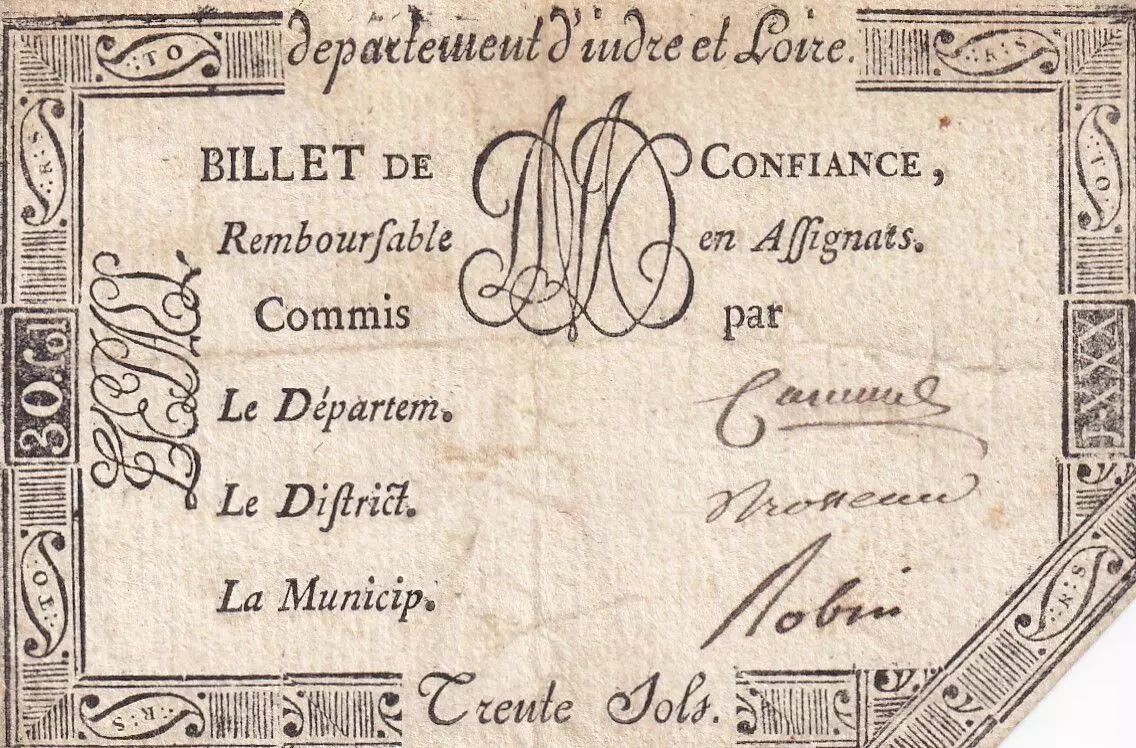 departement d'indre et Loire.
TO
R S
BILLET DE CONFIANCE,
Rembourſable en Aſſignats.
Commis par
30. ſo
XXX
Le Départem.
Le Diſtrict.
La Municip. Robin
Trente Sols.
TO
R S
TO
R S
R S